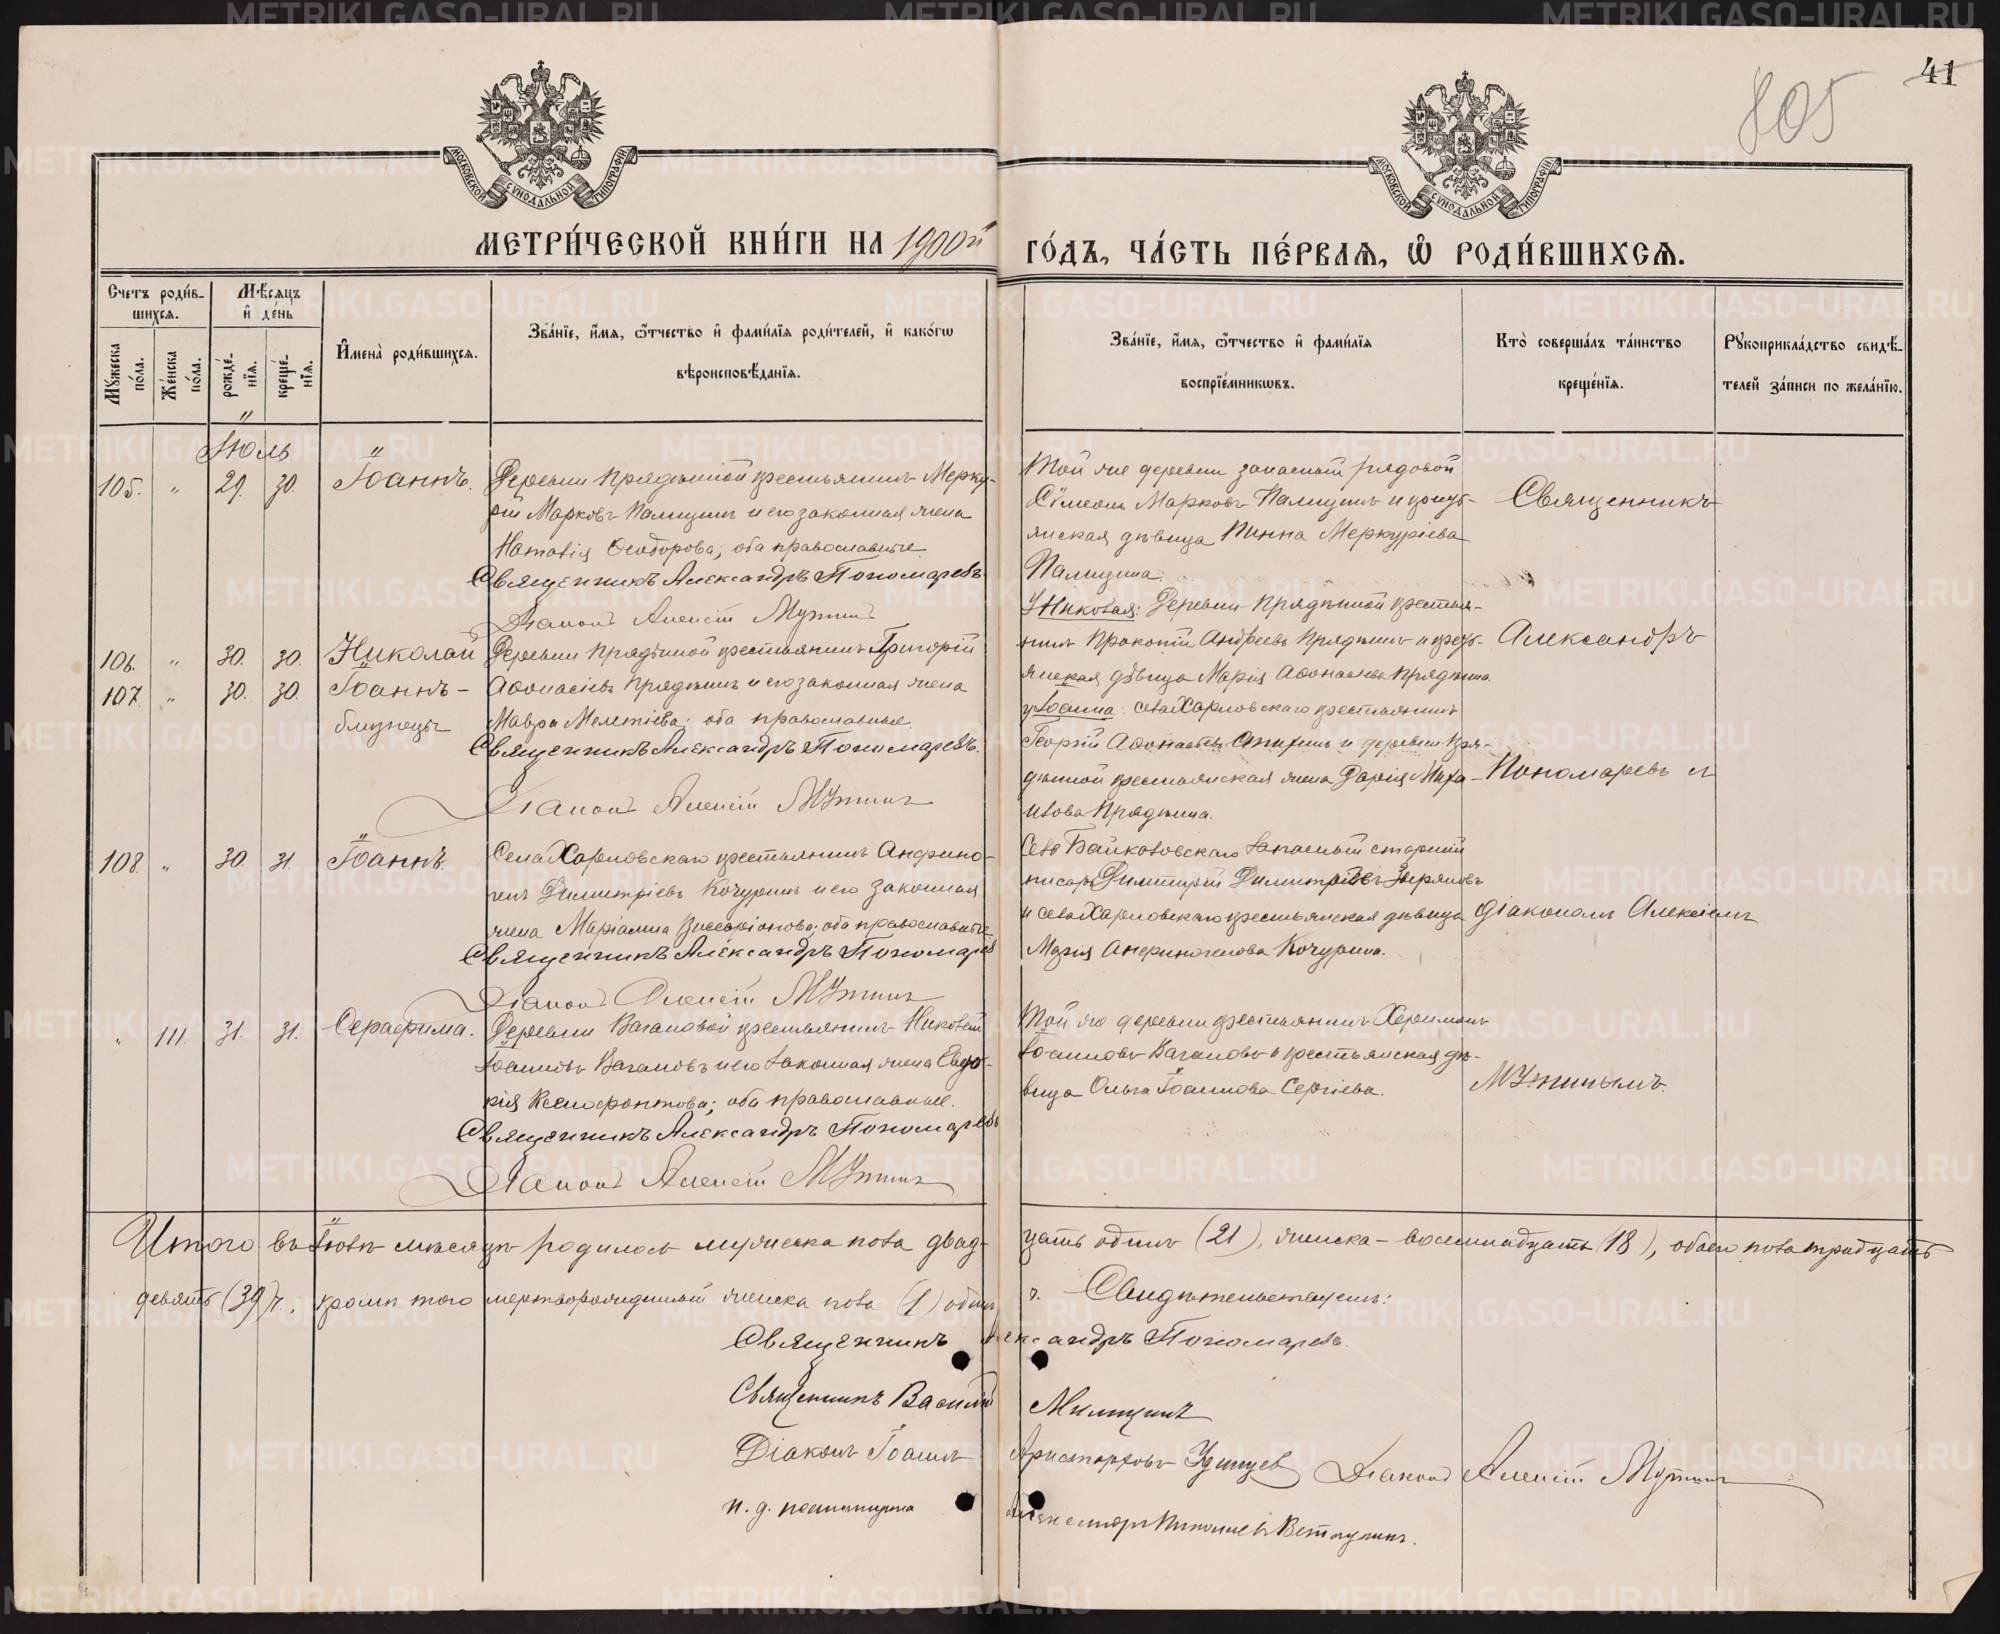 41
805
МОСКОВСКОЙ СѴНОДАЛЬНОЙ ТИПОГРАФІИ
МОСКОВСКОЙ СѴНОДАЛЬНОЙ ТИПОГРАФІИ
МЕТРИ́ЧЕСКОЙ КНИ́ГИ НА 1900й
ГО́ДЪ, ЧА́СТЬ ПЕ́РВАѦ, Ѡ РОДИ́ВШИХСѦ.
Счетъ роди́в-
шихсѧ.
Мѣсѧцъ
и҆ де́нь
Мꙋжеска
по́ла.
Же́нска
по́ла.
рожде́-
нїѧ.
креще́-
нїѧ.
И҆мена̀ роди́вшихсѧ.
Зва́нїе, и҆́мѧ, ѻ҆́тчество и҆ фами́лїѧ роди́телей, и҆ како́гѡ
вѣроисповѣ́данїѧ.
Зва́нїе, и҆́мѧ, ѻ҆́тчество и҆ фами́лїѧ
воспрїе́мникѡвъ.
Кто̀ соверша́лъ та́инство
креще́нїѧ.
Рꙋкоприкла́дство свидѣ́-
телей за́писи по жела́нїю.
Іюль
105. " 29. 30. Іоаннъ.
Деревни Прядѣиной крестьянинъ Мерку-
рій Марковъ Палицинъ и его законная жена
Наталія Ѳеодорова; оба православные.
Священникъ Александръ Пономаревъ
Діаконъ Алексій Мутинъ
Той же деревни запасный рядовой
Сѵмеонъ Марковъ Палицинъ и кресть-
янская дѣвица Нинна Меркуріева
Палицина.
Священникъ
106. " 30. 30. Николай
107. " 30. 30. Іоаннъ –
близнецы
Деревни Прядѣиной крестьянинъ Григорій
Аѳонасіевъ Прядѣинъ и его законная жена
Мавра Мелетіева; оба православные.
Священникъ Александръ Пономаревъ.
Діаконъ Алексій Мутинъ
у Николая: Деревни Прядѣиной крестья-
нинъ Прокопій Андреевъ Прядѣинъ и кресть-
янская дѣвица Марія Аѳонасіева Прядѣина
у Іоанна: села Харловскаго крестьянинъ
Георгій Аѳонасіевъ и деревни Пря-
дѣиной крестьянская жена Дарія Миха-
илова Прядѣина.
Александръ
Пономаревъ и
108. " 30. 31. Іоаннъ.
Села Харловскаго крестьянинъ Андрино-
Димитріевъ Кочуринъ и его законная
жена Маріамна Виссаріонова; оба православные.
Священникъ Александръ Пономаревъ
Діаконъ Алексій Мутинъ
Села Байкаловскаго запасный старшій
писарь Димитрій Димитріевъ Звѣряковъ
и села Харловскаго крестьянская дѣвица
Марія Кочурина.
діакономъ Алексіемъ
" 111. 31. 31. Серафима.
Деревни Вагановой крестьянинъ Николай
Іоанновъ Вагановъ и его законная жена Евдо-
кія Ксенофонтова; оба православные.
Священникъ Александръ Пономаревъ
Діаконъ Алексій Мутинъ
Той же деревни крестьянинъ
Іоанновъ Вагановъ и крестьянская дѣ-
вица Ольга Іоаннова Сергіева.
Мутинымъ.
Итого въ Іюлѣ мѣсяцѣ родилось мужеска пола двад-
цать одинъ (21), женска – восемнадцать (18), обоего пола тридцать
девять (39) ч., кромѣ того мертворожденный женска пола (1) одинъ
ч. Свидѣтельствуемъ:
Священникъ Александръ Пономаревъ.
Священникъ Василій Милицинъ
Діаконъ Іоаннъ Аристарховъ Удинцев Діаконъ Алексій Мутинъ
и. д. псаломщика
METRIKI.GASO-URAL.RU